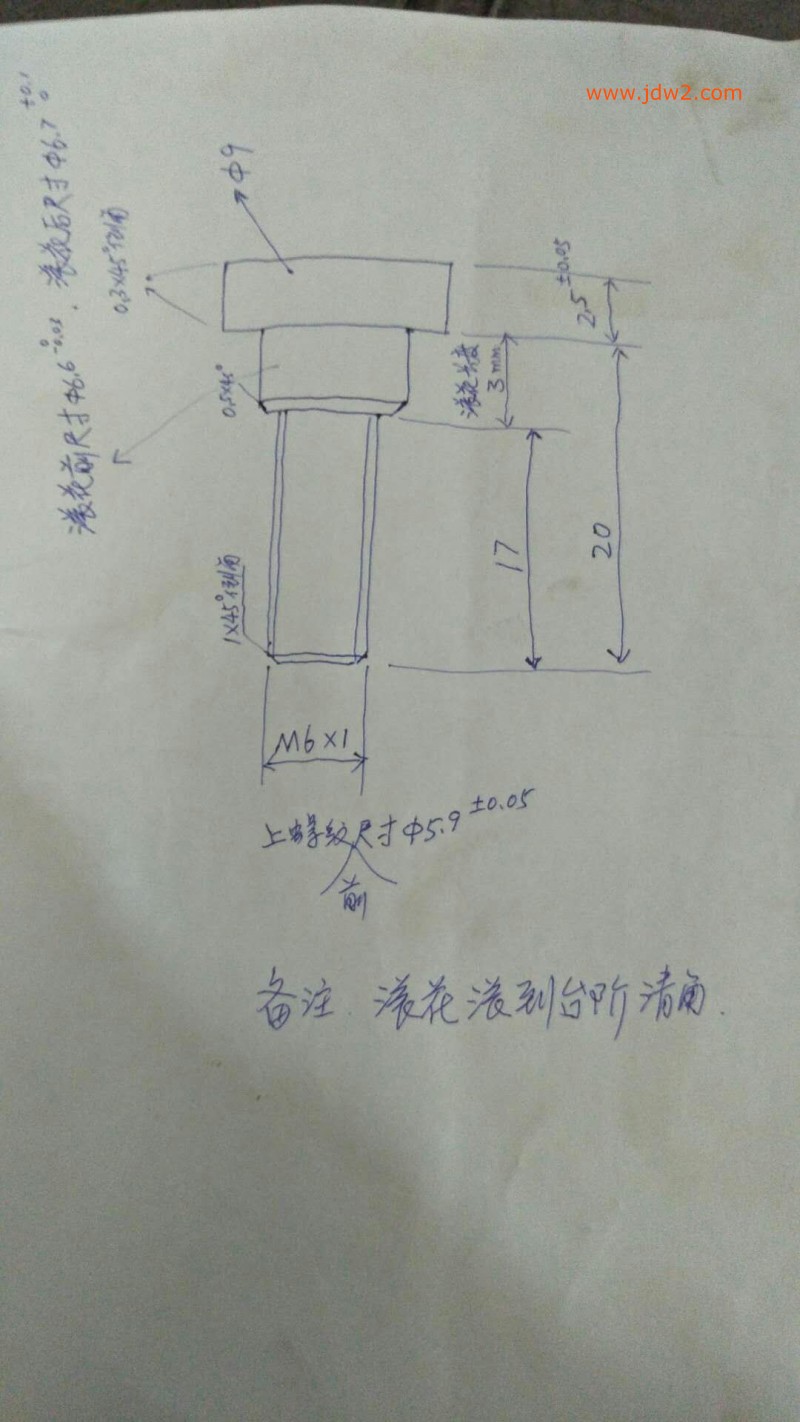 www.jdw2.com
滚花前尺寸Φ6.6 0 -0.03 . 滚花后尺寸Φ6.7 +0.1 0
0.3×45°倒角
Φ9
2.5 ±0.05
滚花长度
3mm
0.5×45°
17
20
1×45°倒角
M6×1
上螺纹尺寸Φ5.9 ±0.05
前
备注. 滚花滚到台阶清角.